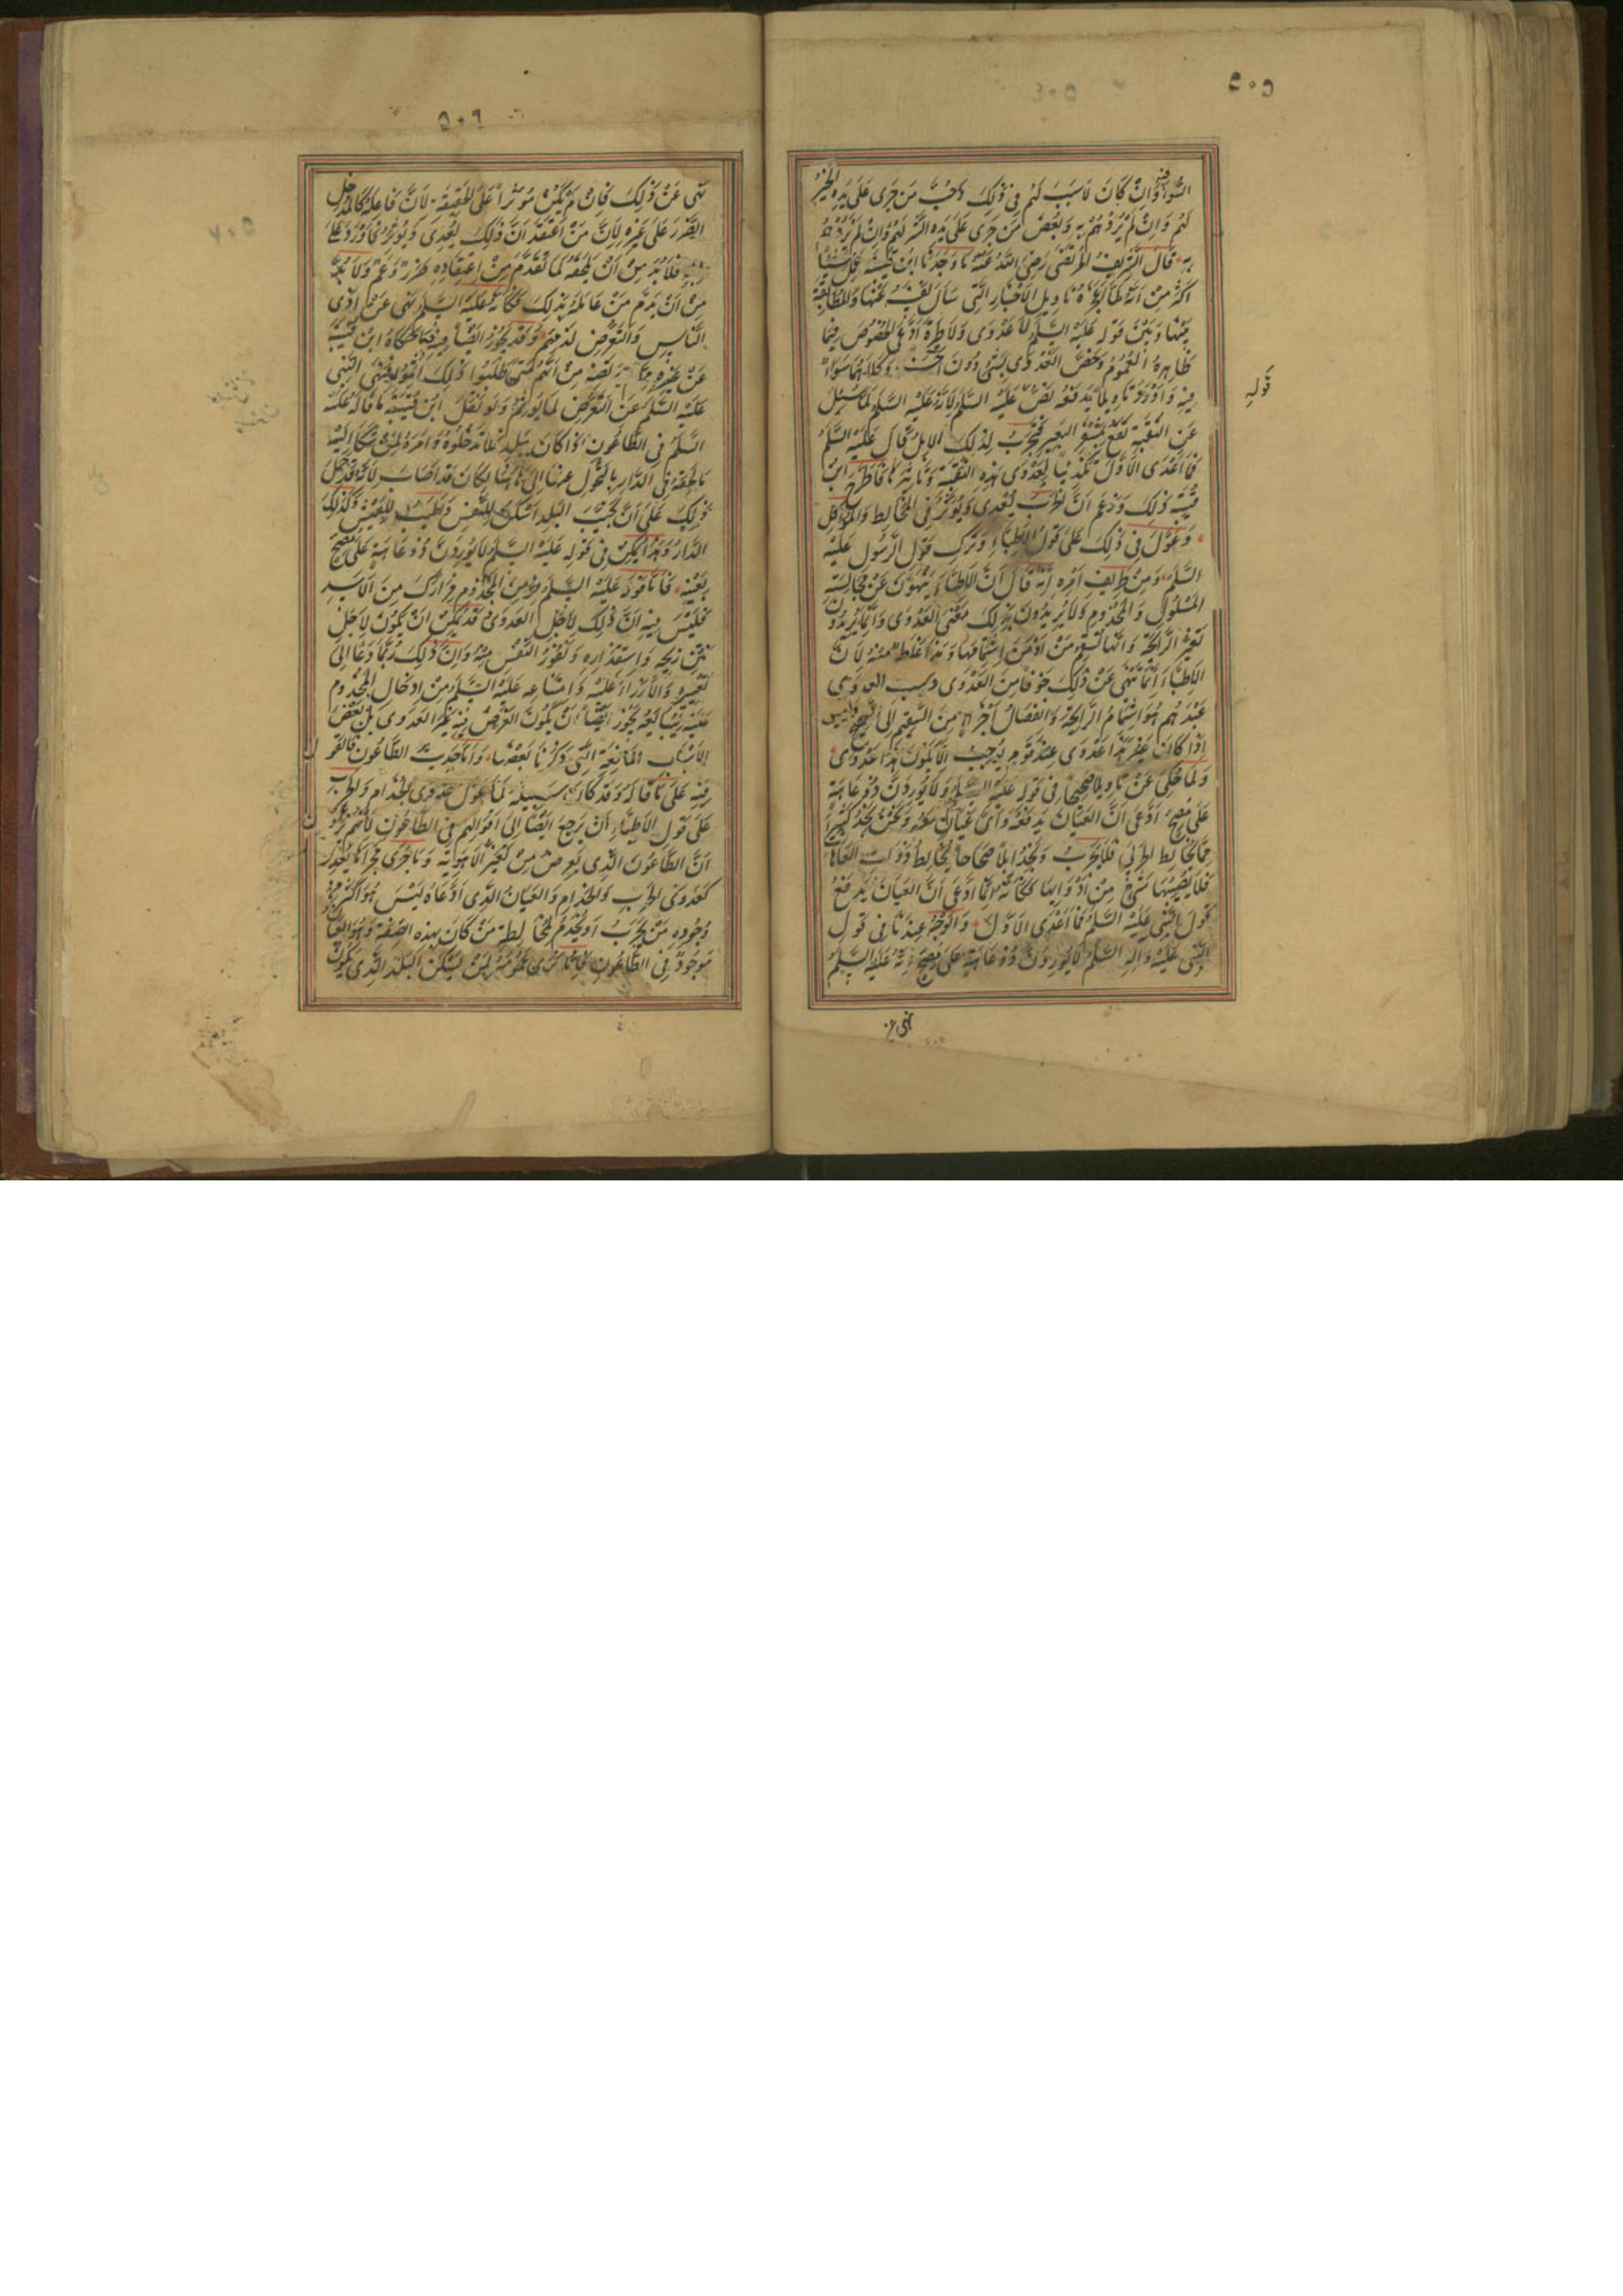 ٥٠٥
السوء وان كان لا سبب لهم في ذلك وحب من جرى على يده الخير
لهم وان لم يردهم به وبغض من جرى على يده الشر لهم وان لم يردهم
به قال الشريف المرتضى رضي الله عنه ما وجدنا ابن قتيبة
اكثر من انه لما تاويل الاخبار التي سأل نفسه عنها والمطابقة
بينها وبين قوله عليه السلم لا عدوى ولا طيرة ادعى الخصوص فيما
ظاهره العموم وخص العدوى بشئ دون اخر وكلاهما سواء
فيه واورد تاويلا يدفعه نص عليه السلم لانه عليه السلم لما سئل
عن النقبة تقع بمشفر البعير فتجرب لذلك الابل قال عليه السلم
فما اعدى الاول تكذيبا لعدوى هذه النقبة وتاثيرها فاطرح ابن
قتيبة ذلك وزعم ان الجرب يعدى ويؤثر في المخالط والمواكل
وعول في ذلك على قول الاطباء وترك قول الرسول عليه
السلم ومن طريف امره انه قال ان الاطباء ينهون عن مجالسة
المسلول والمجذوم ولا يريدون بذلك معنى العدوى وانما يريدون
تغير الرائحة وانها تسقم من ادمن اشتمامها وهذا غلط منه لان
الاطباء انما تنهى عن ذلك خوفا من العدوى وسبب العدوى
عندهم هو اشتمام الرائحة وانفصال اجزاء من السقيم الى الصحيح وليس
اذا كان غير هذا عدوى عند قوم يوجب الا يكون هذا عدوى
ولما حكى عن تاويلا صحيحا في قوله عليه السلم ولا يوردن ذو عاهة
على مصح ادعى ان العيان يدفعه واي عيان معه ونحن نجد كثيرا
مما يخالط الجربى فلا يجرب ونجد ابلا صحاحا تخالط ذوات العاهات
فلا يصيبها شئ من ادوائها فكانه انما ادعى ان العيان يدفع
قول النبي عليه السلم فما اعدى الاول والوجه عندنا في قول
النبي عليه واله السلم لا يوردن ذو عاهة على مصح انه عليه السلم
قوله
نهى عن
٥٠٦
نهى عن ذلك فان لم يكن مؤثرا على الحقيقة لان فاعله كالمدخل
الضرر على غيره لان من اعتقد ان ذلك يعدى ويؤثر فاورد على
فلا بد من ان يلحقه لما تقدم من اعتقاده ضرر وغم ولا بد
من ان يذم من عامله بذلك فكانه عليه السلم نهى عن اذى
الناس والتعرض لذمهم وقد يجوز ايضا فيه ما حكاه ابن قتيبة
عن غيره مما لم يرتضه من انهم متى ظنوا ذلك اثموا فنهى النبي
عليه السلم عن التعرض لما يؤثم ولو نقل ابن قتيبة ما قاله عليه
السلم في الطاعون اذا كان ببلد فلا تدخلوه وامره لمن شكا اليه
ما لحقه في الدار بالتحول عنها الى ها هنا لكان قد اصاب لانه قد حمل
ذلك على ان تجنب البلد اسكن للنفس واطيب للعيش وكذلك
الدار وهذا يمكن في قوله عليه السلم لا يوردن ذو عاهة على مصح
بعينه فاما قوله عليه السلم فر من المجذوم فرارك من الاسد
فليس فيه ان ذلك لاجل العدوى وقد يمكن ان يكون لاجل
نتن ريحه واستقذاره ونفور النفس منه وان ذلك ربما دعا الى
تعييره والازراء عليه وامتناعه عليه السلم من ادخال المجذوم
عليه ليبايعه يجوز ايضا ان يكون الغرض فيه غير العدوى بل بعض
الاسباب المانعة التي ذكرنا بعضها واما حديث الطاعون فالقول
فيه على ما قاله وقد كان سبيله لما عول في عدوى الجذام والجرب
على قول الاطباء ان يرجع ايضا الى اقوالهم في الطاعون لانهم يزعمون
ان الطاعون الذي يعرض من تغير الاهوية وما جرى مجراها يعدى
كعدوى الجرب والجذام والعيان الذي ادعاه ليس هو اكثر من
وجوده من يجرب او يجذم لمخالطة من كان بهذه الصفة وهو العيان
موجود في الطاعون فانا نرى عمومه لمن يسكن البلد الذي يكون